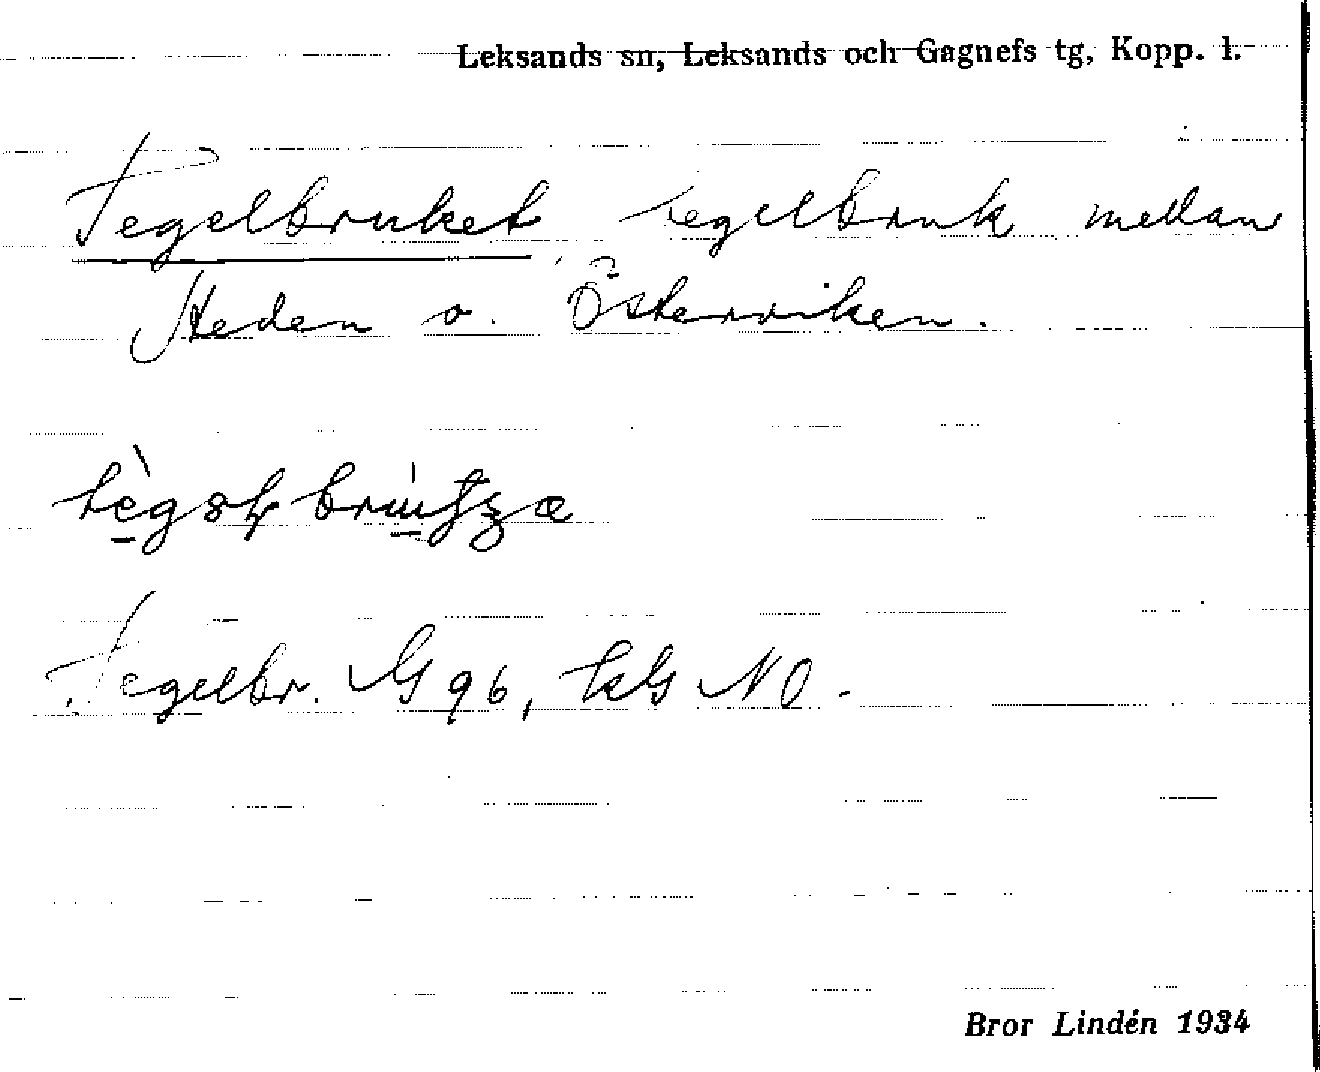 Leksands sn, Leksands och Gagnefs tg, Kopp. l.
Tegelbruket, tegelbruk mellan
Heden o. Österviken.
Tegelbr. G 96, NO.
Bror Lindén 1934